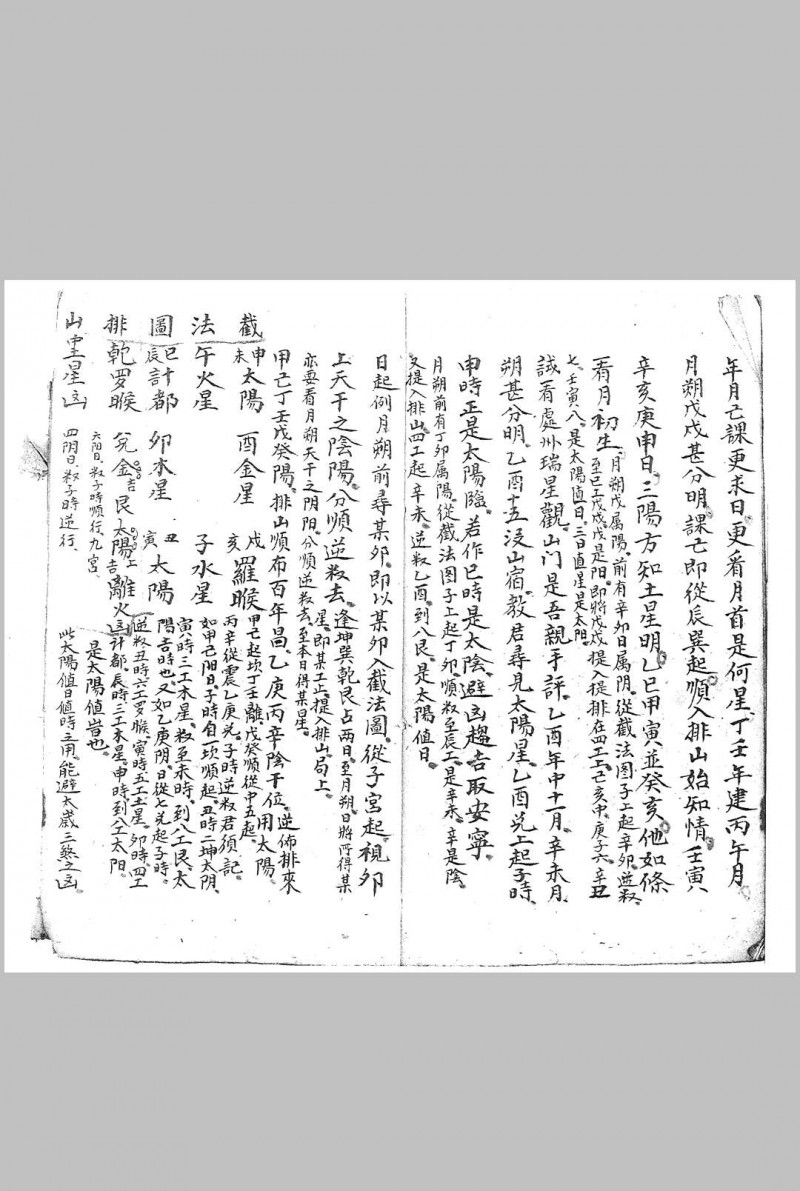 年月已課更求日更看月首是何星丁壬年建丙午月
月朔戊戌甚分明課已即從辰巽起順入排山始知情壬寅
辛亥庚申日三陽方知土星明乙巳甲寅並癸亥他如條
看月初生
月朔戊属陽前有辛卯日属阴從截法图子上起辛卯逆数
至巳工戊戌戊是阳即將戊戌提入提排在四工上己亥中庚子六辛丑
七壬寅八是太陽值日三日值星是太阳
試看處州瑞星觀山门是吾親手評乙酉年中十一月辛未月
朔甚分明乙酉十五没山宿教君尋見太陽星乙酉兑上起子時
申時正是太陽臨若作巳時是太陰避凶趨吉取安寧
月朔前有丁卯属陽從截法图子上起丁卯順数至辰工是辛未辛是陰
又提入排山四工起辛未逆数乙酉到八艮是太陽值日
日起例月朔前尋某卯即以某卯入截法圖從子宮起視卯
上天干之陰陽分順逆数去逢坤巽乾艮占两日至月朔日將所得某
星即某工上提入排山局上
亦要看月朔天干之阴阳分順逆数去至本日得某星
甲己丁壬戊癸陽排山順布百年昌乙庚丙辛陰干位逆佈排來用太陽
截法圖排山掌星凶
申未太陽 酉金星 戌亥羅睺
午火星 子水星
巳辰計都 卯木星 寅丑太陽
乾罗睺 兑金吉 艮太陽吉 離火凶
甲己起坎丁壬離戊癸順從中五起
丙辛從震乙庚兑子時逆数君須記
如甲己阳日子時自一坎順起丑時二坤太阴
寅時三工木星数至未時到八工艮太
陽吉時也又如乙庚阴日從七兑起子時
逆数丑時六工罗睺寅時五工土星卯時四工
計都辰時三工木星申時到八工太阳
是太陽值時也
六阳日数子時順行九宮
四阴日数子時逆行
此太陽值日值時之用能避太歲三煞之凶